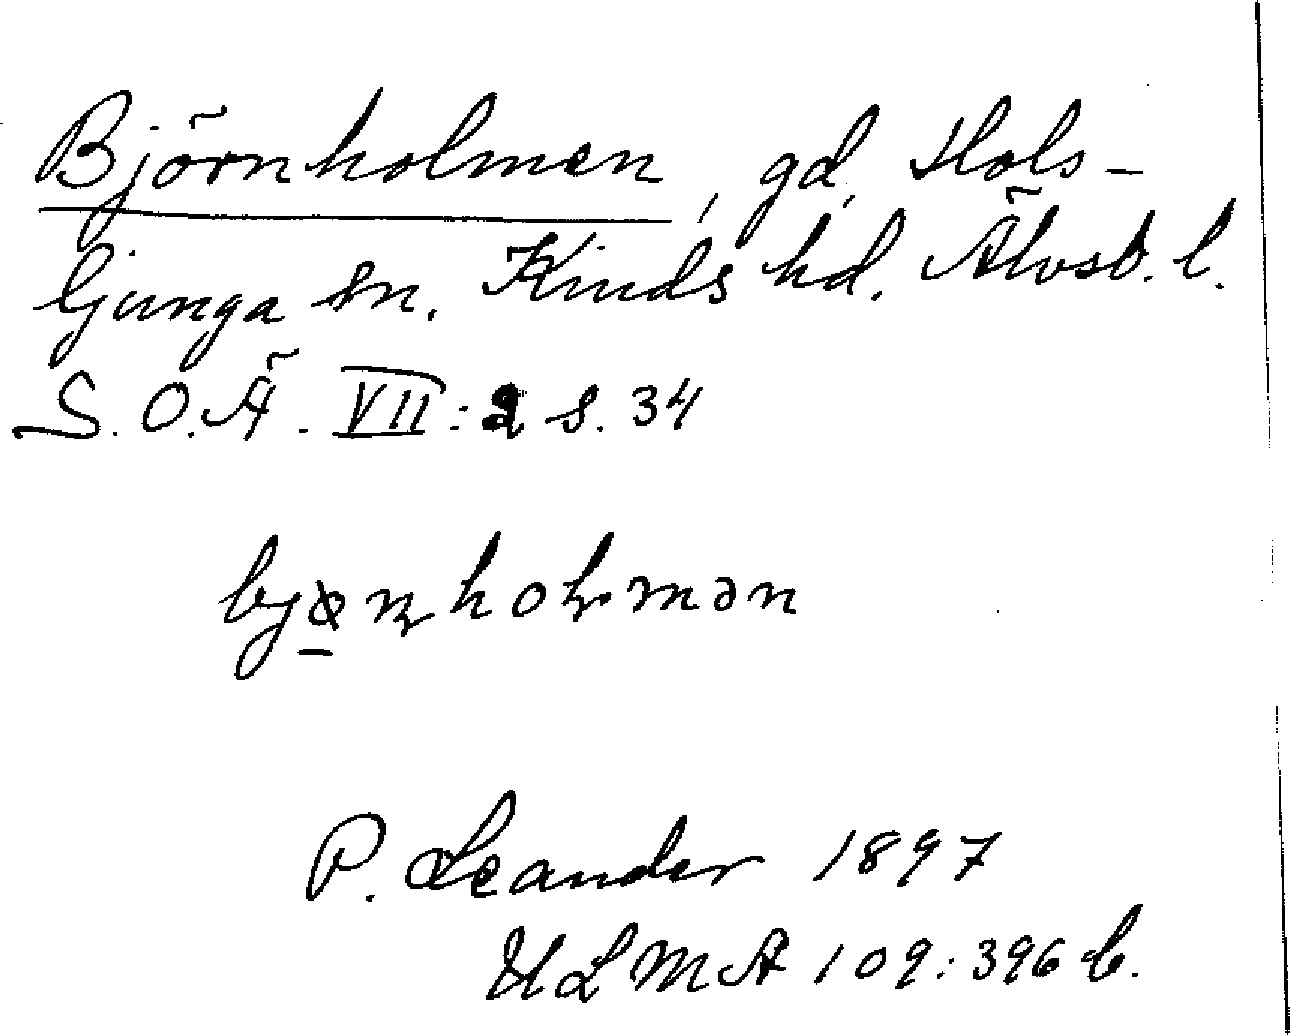 Björnholmen, gd, Hols-
ljunga sn. Kinds hd. Älvsb. l.
S. O. Ä. VII: 2 s. 34
bjønholmən
P. Leander 1897
ULMA 109:396 b.